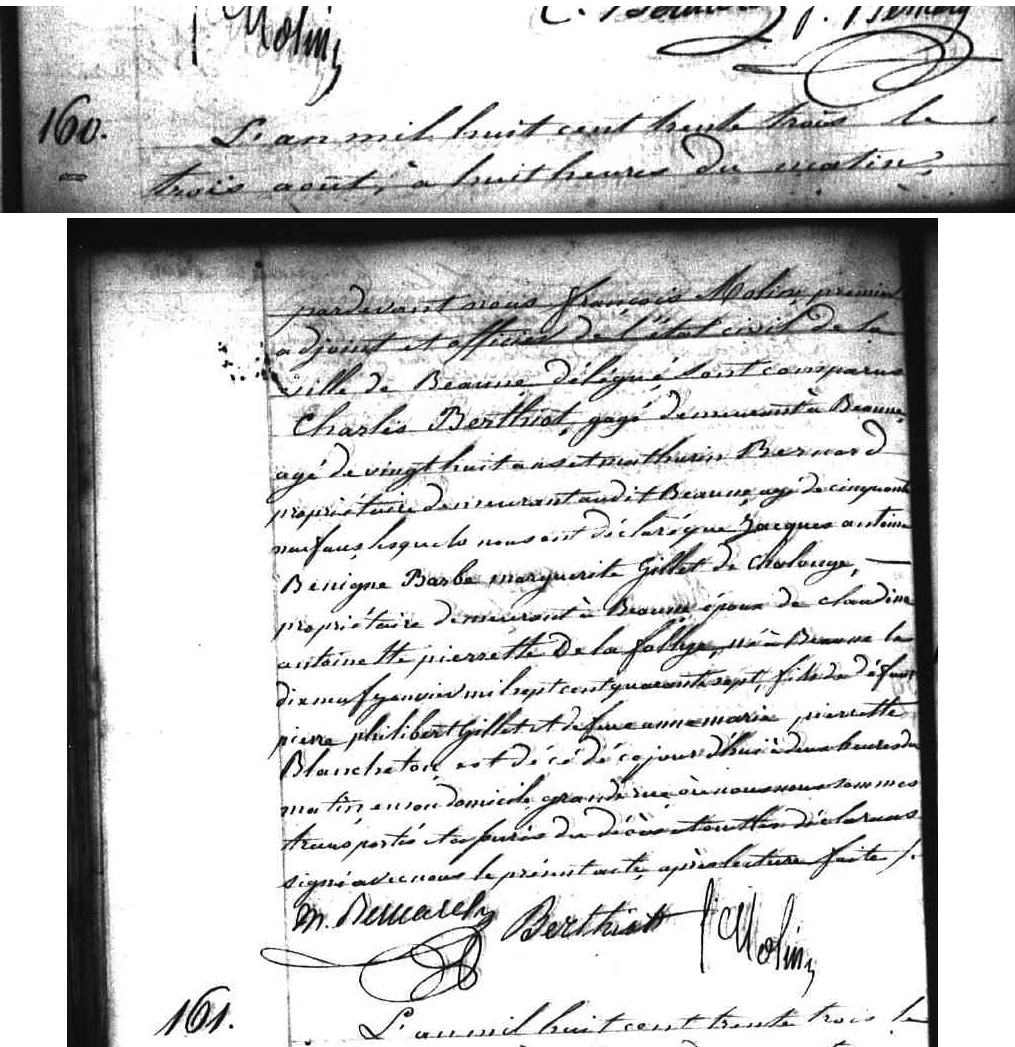 f Molin
160.
L'an mil huit cent trente trois le
trois août, à huit heures du matin,
pardevant nous françois Molin, premier
adjoint et officier de l'état civil de la
ville de Beaune, délégué, sont comparus
Charles Berthiot, gagé demeurant à Beaune,
agé de vingt huit ans et mathurin Bernard
propriétaire demeurant audit Beaune, agé de cinquante
neuf ans lesquels nous ont déclaré que Jacques antoine
Benigne Barbe marguerite Gillet de Chalonge,
propriétaire demeurant à Beaune époux de claudine
antoinette pierrette De la follye, né à Beaune le
dix neuf janvier mil sept cent quarante sept, fils de défunt
pierre philibert Gillet et de feue anne marie pierrette
Blancheton, est décédé ce jour d'hui à deux heures du
matin, en son domicile, grande rue où nous nous sommes
transportés et assurés du décès et ont les déclarans
signé avec nous le présent acte, après lecture faite /.
m. Bernard Berthiot f Molin
161.
L'an mil huit cent trente trois le